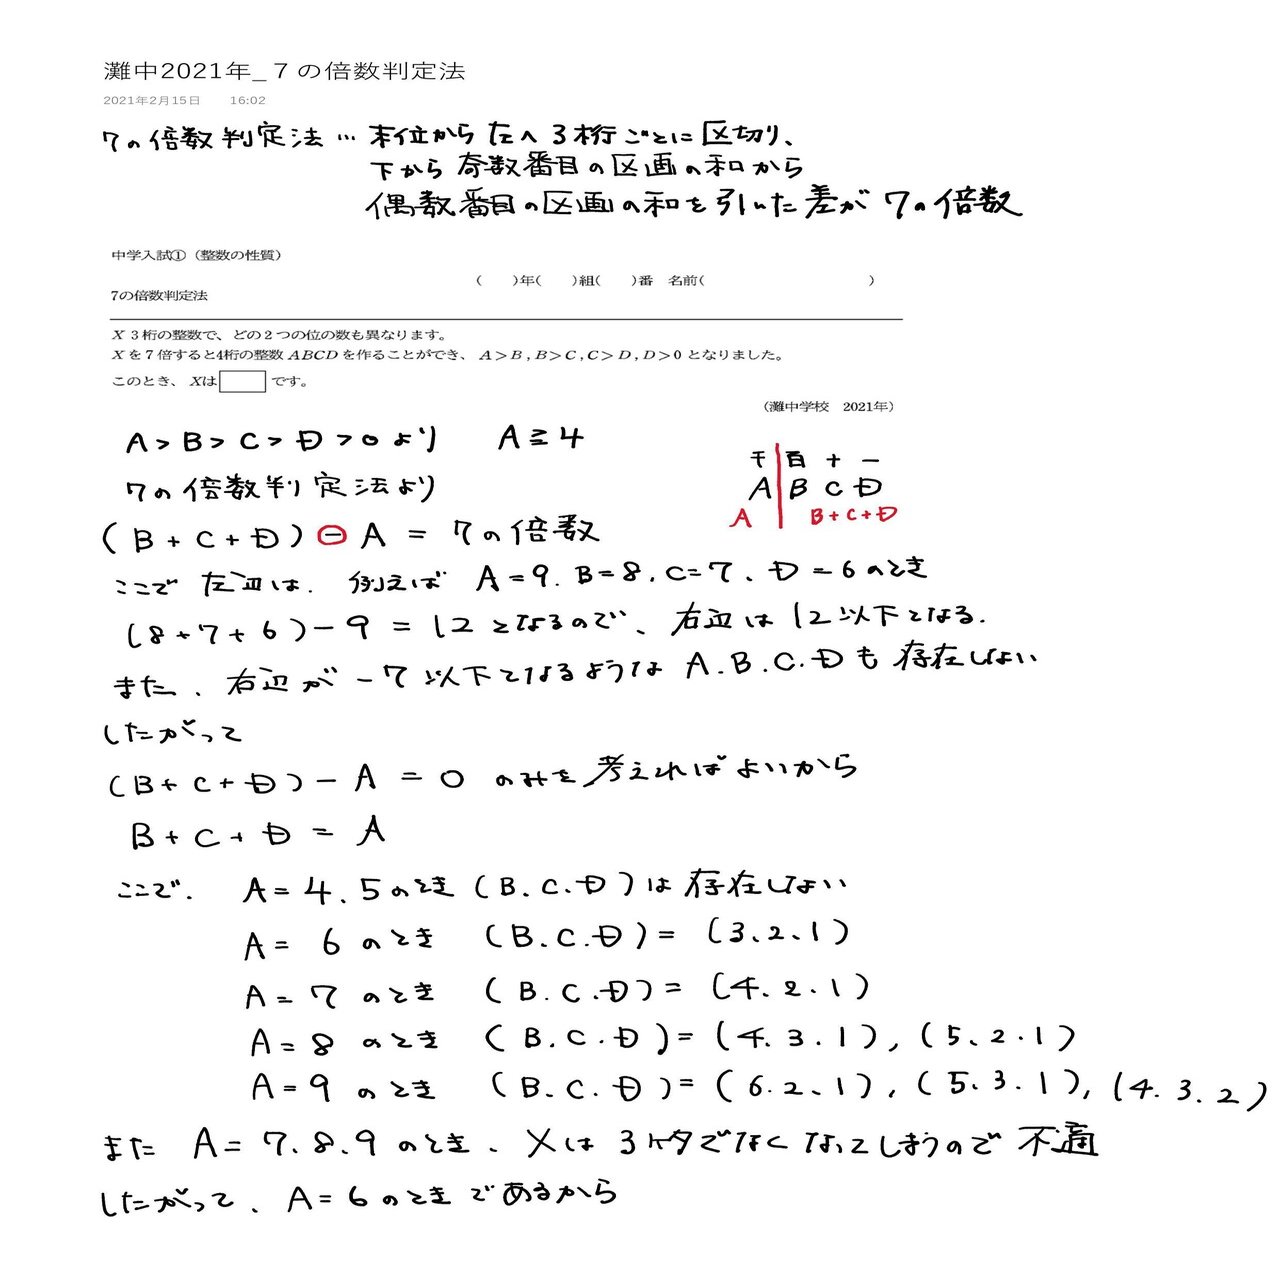 灘中2021年_７の倍数判定法
2021年2月15日 16:02
7の倍数判定法… 末位から左へ3桁ごとに区切り、
下から奇数番目の区画の和から
偶数番目の区画の和を引いた差が7の倍数
中学入試①（整数の性質）
（　　）年（　　）組（　　）番　名前（　　　　　　　　　　　　）
7の倍数判定法
X 3桁の整数で、どの2つの位の数も異なります。
Xを7倍すると4桁の整数ABCDを作ることができ、A>B,B>C,C>D,D>0となりました。
このとき、Xは□です。
（灘中学校　2021年）
A>B>C>D>0より　A≧4
千|百 十 一
A|B C D
A|B+C+D
7の倍数判定法より
(B+C+D)⊖A=7の倍数
ここで左辺は、例えばA=9、B=8、C=7、D=6のとき
(8+7+6)-9=12となるので、右辺は12以下となる.
また、右辺が-7以下となるようなA.B.C.Dも存在しない
したがって
(B+C+D)-A=0のみを考えればよいから
B+C+D=A
ここで、A=4.5のとき(B.C.D)は存在しない
A=6のとき (B.C.D)=(3.2.1)
A=7のとき (B.C.D)=(4.2.1)
A=8のとき (B.C.D)=(4.3.1),(5.2.1)
A=9のとき (B.C.D)=(6.2.1),(5.3.1),(4.3.2)
また A=7.8.9のとき、Xは3ケタでなくなってしまうので不適
したがって、A=6のときであるから